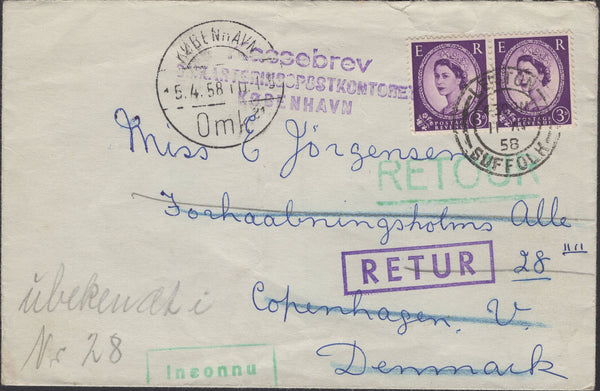 KØBENHAVN
5.4.58
Omk
Kassebrev
OMKARTERINGSPOSTKONTORET
KØBENHAVN
E R E R
POSTAGE REVENUE POSTAGE REVENUE
3D 3D
58
SUFFOLK
Miss E Jörgensen
RETOUR
Forhaabningsholms Alle
RETUR
28 """
Copenhagen. V.
Denmark
übekendt i
Nr 28
Inconnu